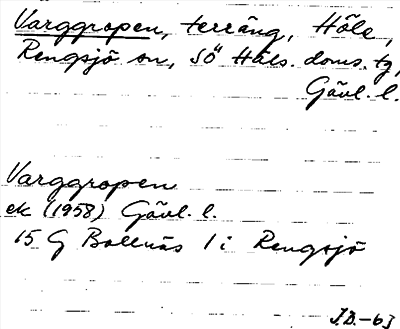 Varggropen, terräng, Höle,
Rengsjö sn, SÖ Häls. doms. tg,
Gävl. l.
Varggropen
ek (1958) Gävl. l.
15 G Bollnäs 1 i Rengsjö
J.D.-63